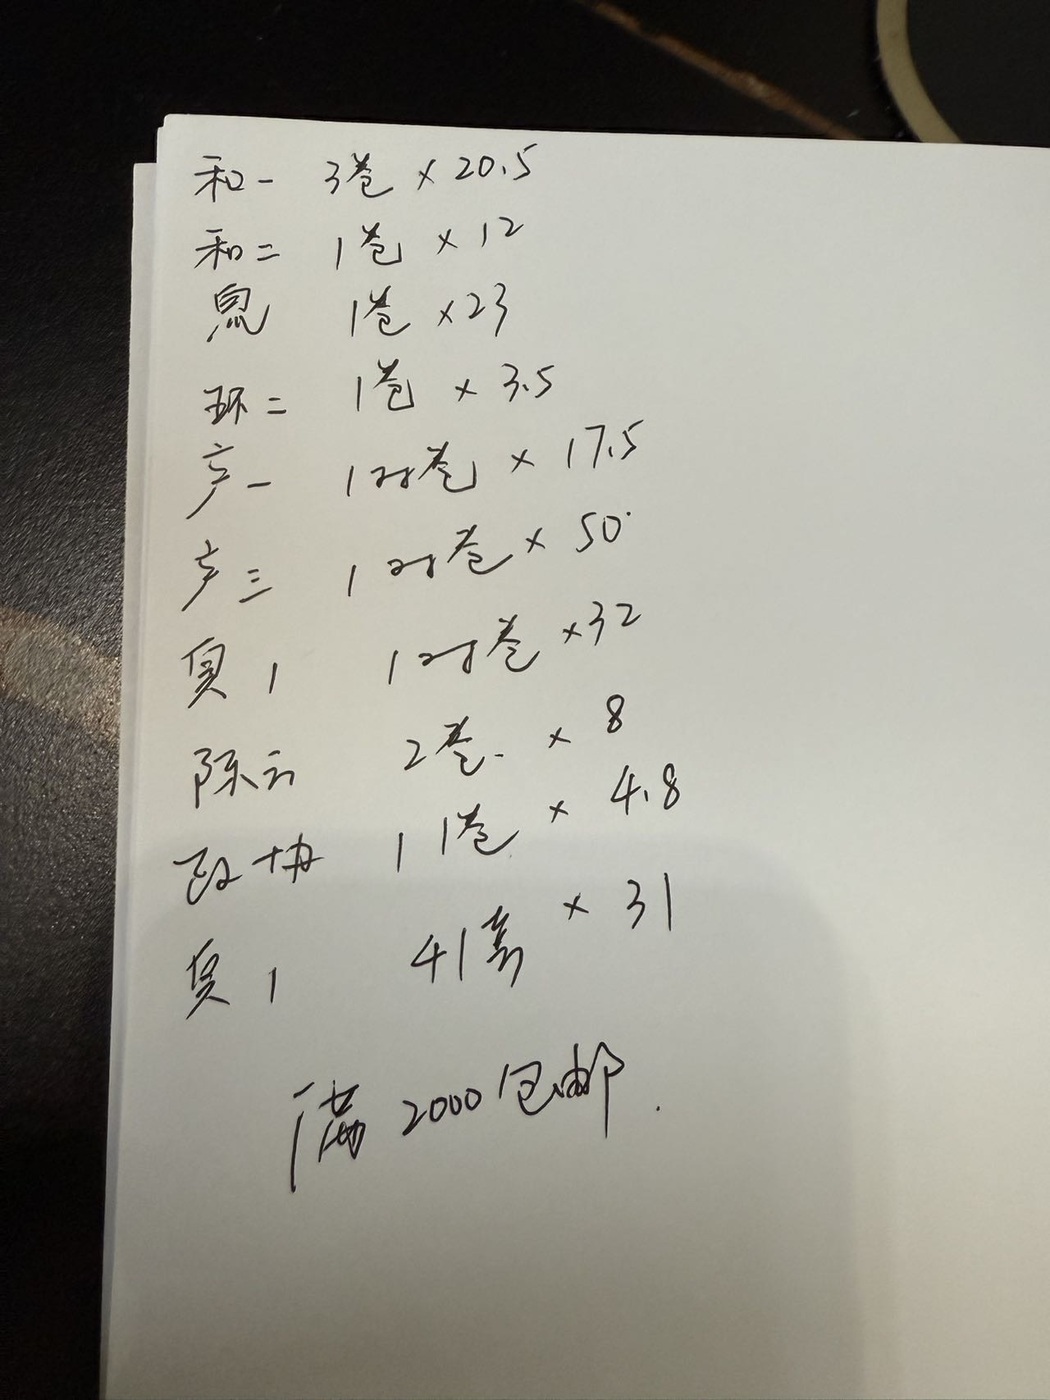 和一 3卷 × 20.5
和二 1卷 × 12
1卷 ×23
环二 1卷 × 3.5
产一 1对卷 × 17.5
产三 1对卷 × 50
1对卷 ×32
陈云 2卷 × 8
政协 11卷 × 4.8
41套 × 31
满2000包邮.